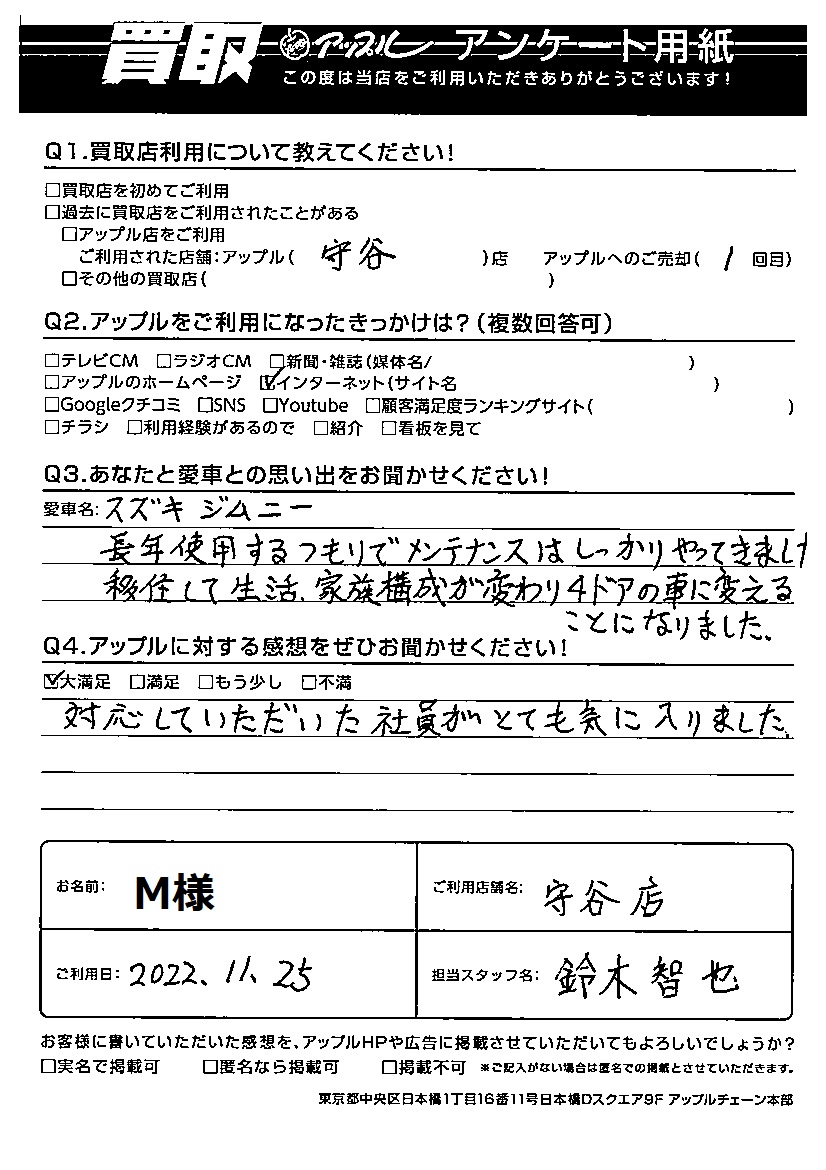 買取 アップル アンケート用紙
この度は当店をご利用いただきありがとうございます！
Q1.買取店利用について教えてください！
□買取店を初めてご利用
□過去に買取店をご利用されたことがある
□アップル店をご利用
ご利用された店舗：アップル( 守谷 )店 アップルへのご売却( 1 回目)
□その他の買取店( )
Q2.アップルをご利用になったきっかけは？(複数回答可)
□テレビCM □ラジオCM □新聞・雑誌(媒体名/ )
□アップルのホームページ ☑インターネット(サイト名 )
□Googleクチコミ □SNS □Youtube □顧客満足度ランキングサイト( )
□チラシ □利用経験があるので □紹介 □看板を見て
Q3.あなたと愛車との思い出をお聞かせください！
愛車名：スズキ ジムニー
長年使用するつもりでメンテナンスはしっかりやってきました
移住して生活、家族構成が変わり4ドアの車に変える
ことになりました。
Q4.アップルに対する感想をぜひお聞かせください！
☑大満足 □満足 □もう少し □不満
対応していただいた社員がとても気に入りました。
お名前： M様 ご利用店舗名： 守谷店
ご利用日： 2022、11、25 担当スタッフ名： 鈴木智也
お客様に書いていただいた感想を、アップルHPや広告に掲載させていただいてもよろしいでしょうか？
□実名で掲載可 □匿名なら掲載可 □掲載不可 ※ご記入がない場合は匿名での掲載とさせていただきます。
東京都中央区日本橋1丁目16番11号日本橋Dスクエア9F アップルチェーン本部